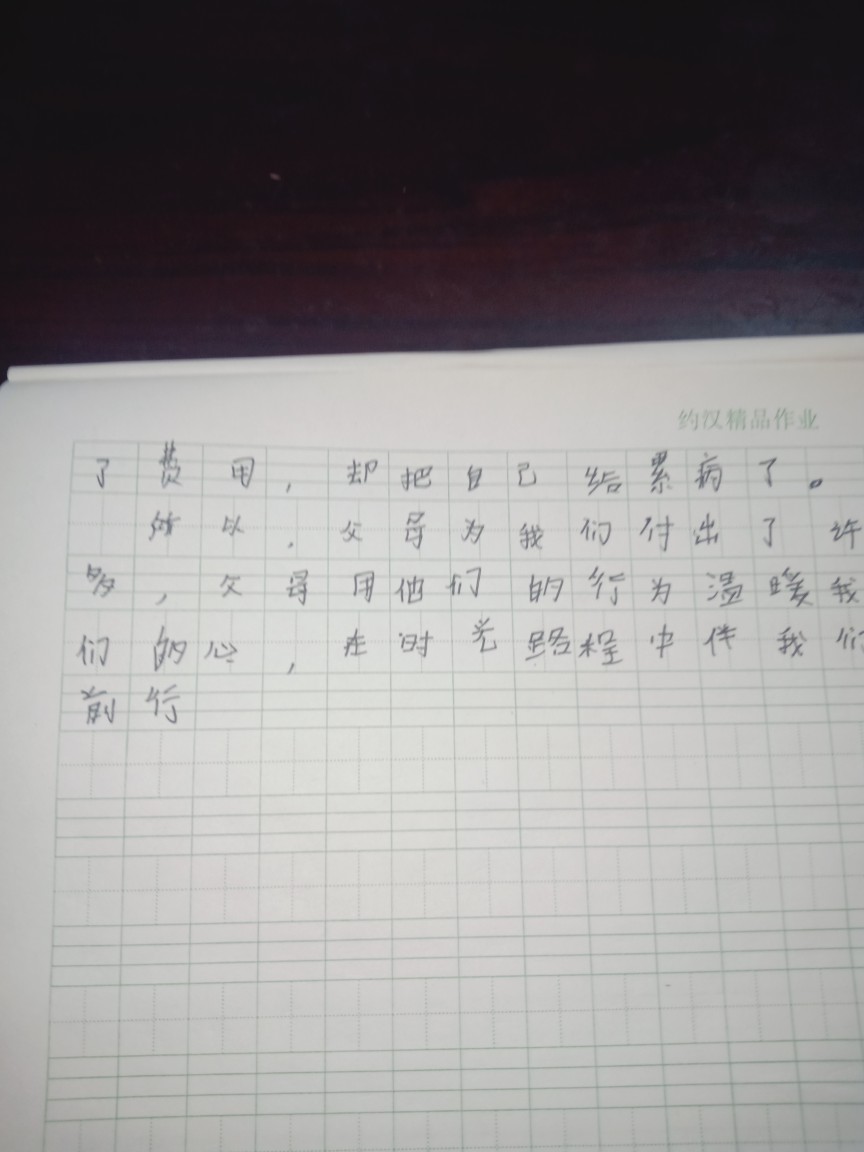 约汉精品作业
了费用，却把自己给累病了。
所以，父母为我们付出了许
多，父母用他们的行为温暖我
们的心，在时光路程中伴我们
前行